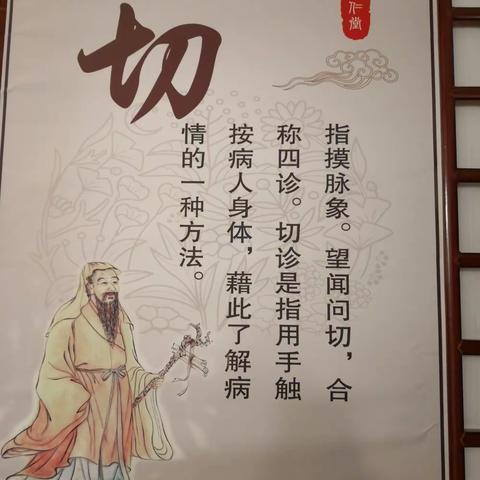 切
仁堂
指摸脉象。望闻问切，合
称四诊。切诊是指用手触
按病人身体，藉此了解病
情的一种方法。